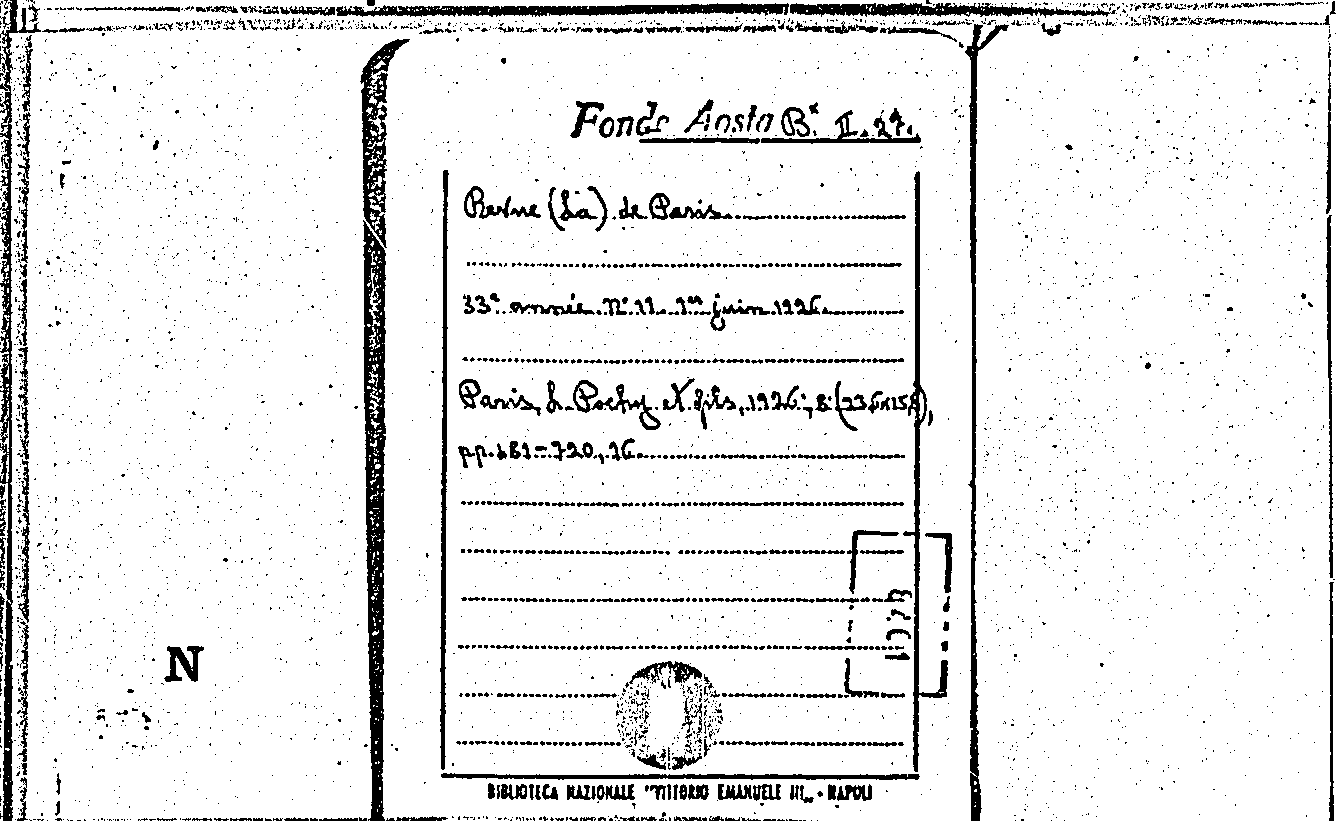 Fondo Aosta Bˣ. II. 27.
Revue (La) de Paris
33ᵉ année. N° 11. 1ᵉʳ juin 1926.
Paris, L. Pochy et fils, 1926; 8° (23,6x15,8),
pp. 481-720, 16.
N
BIBLIOTECA NAZIONALE "VITTORIO EMANUELE III„ - NAPOLI